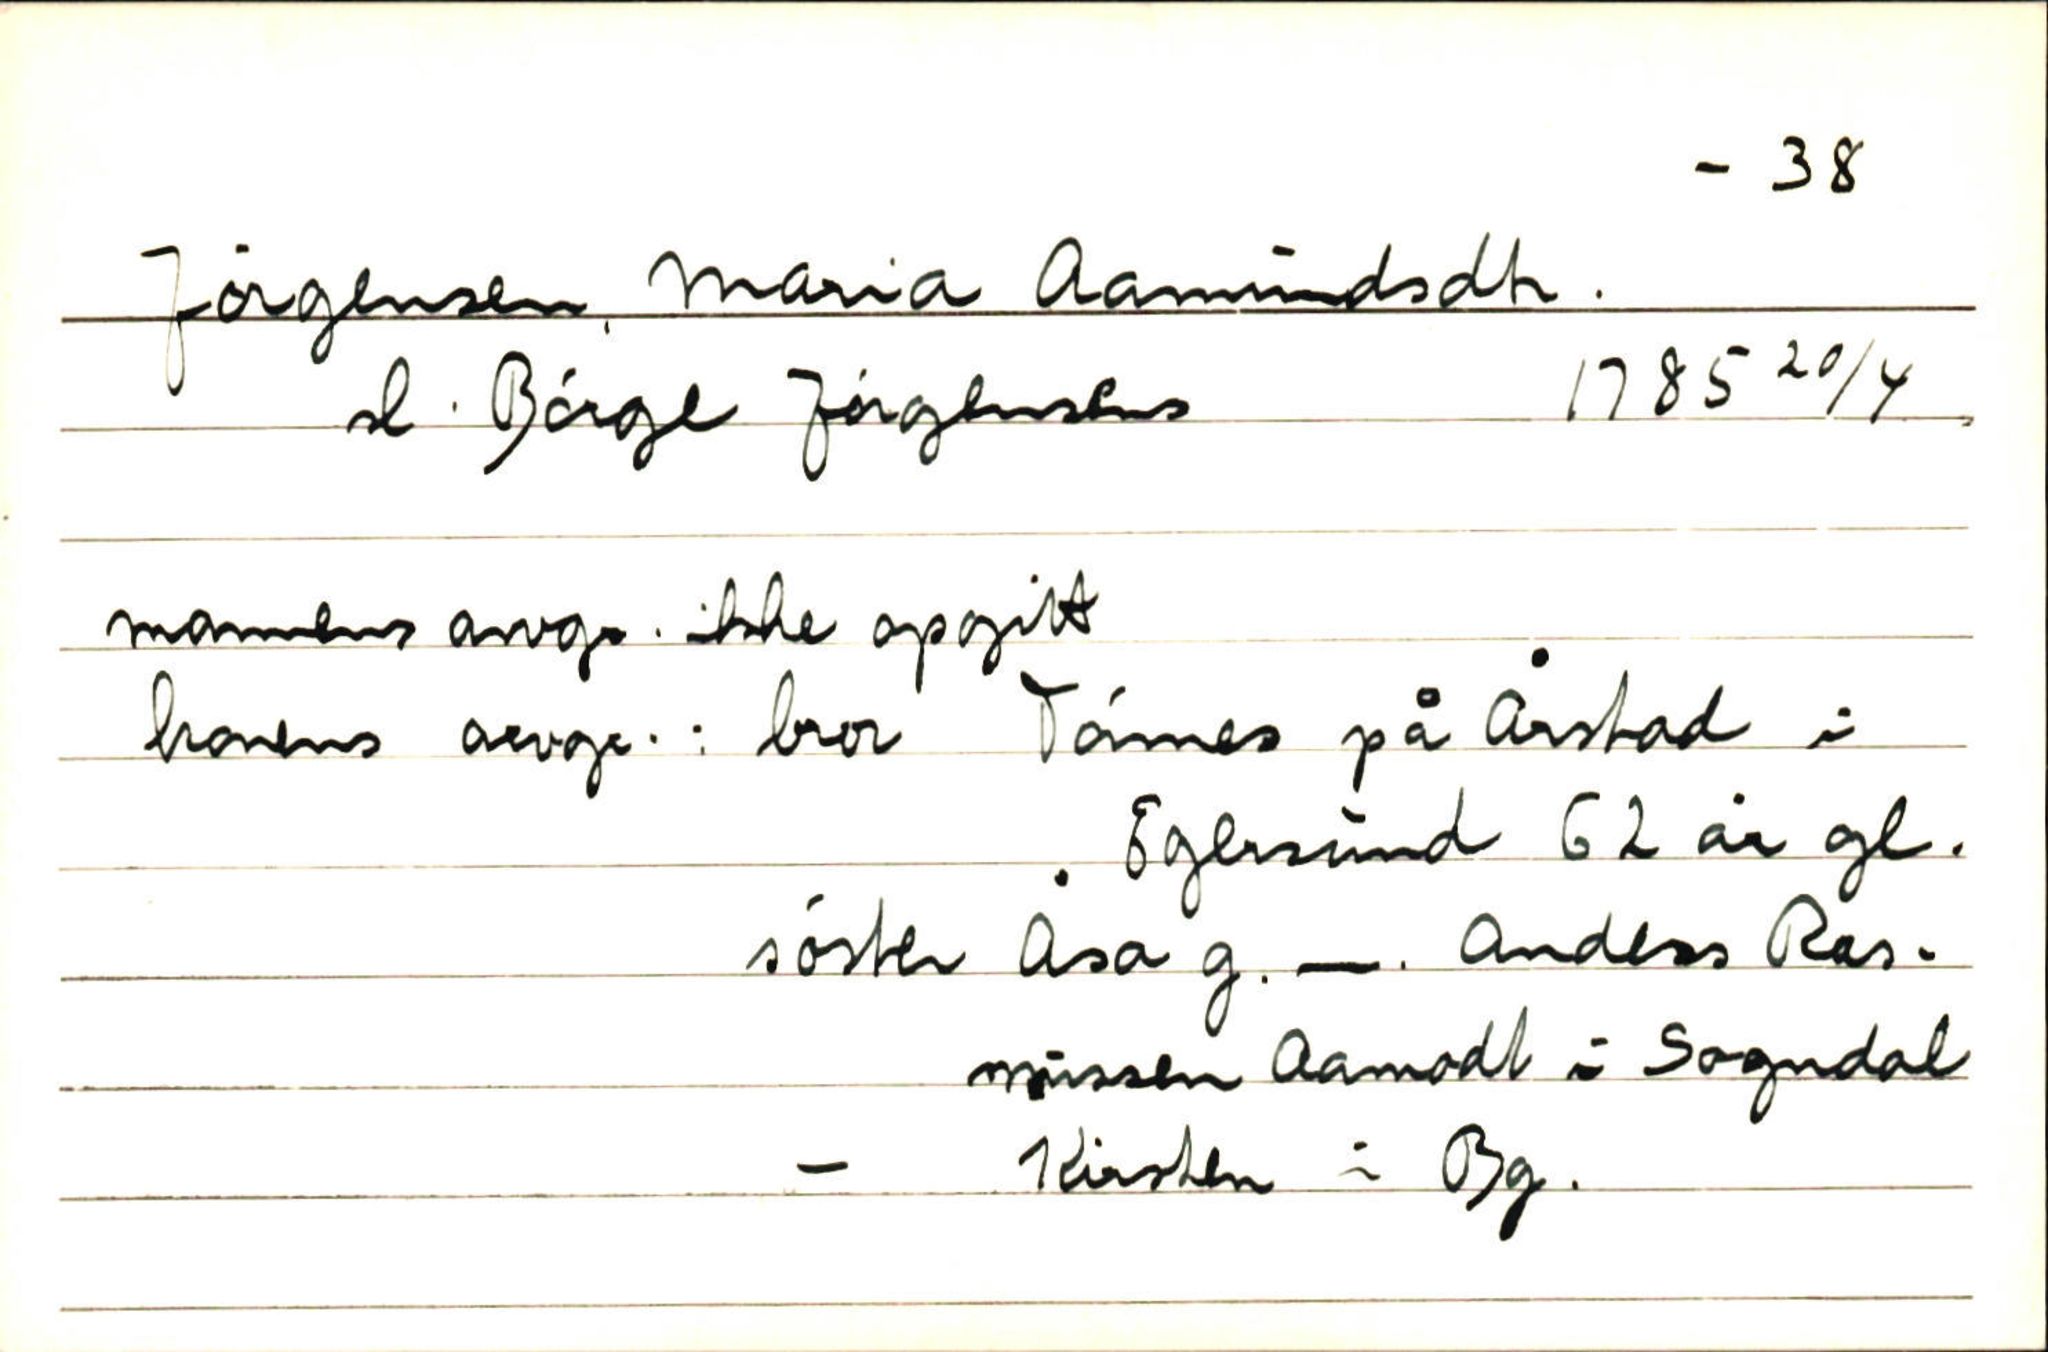 - 38
Jörgensen, Maria Aamundsdtr.
sl. Börge Jörgensens 1785 20/4
mannens arvgr. ikke opgitt
konens arvgr. : bror Tönnes på Årstad i
Egersund 62 år gl.
söster Åsa g. —. Anders Ras-
mussen Aamodt i Sogndal
— Kirsten i Bg.